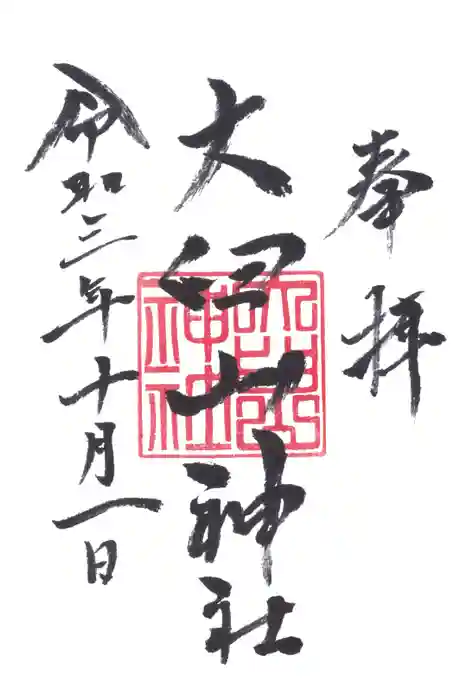 奉拝
大山神社
令和三年十月一日
神社